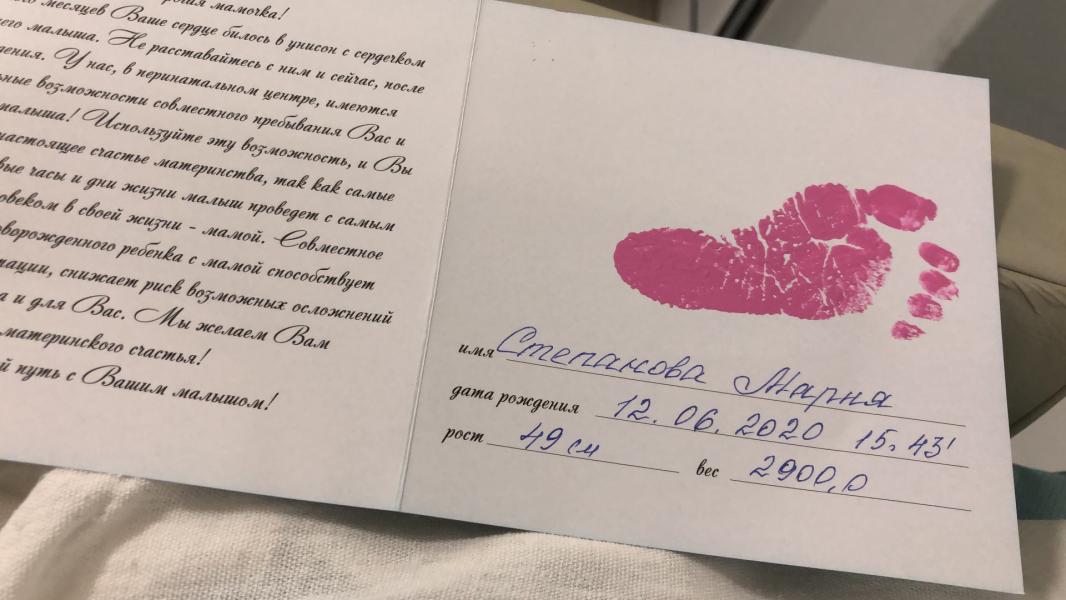 мамочка!
месяцев Ваше сердце билось в унисон с сердечком
малыша. Не расставайтесь с ним и сейчас, после
У нас, в перинатальном центре, имеются
возможности совместного пребывания Вас и
малыша! Используйте эту возможность, и Вы
настоящее счастье материнства, так как самые
часы и дни жизни малыш проведет с самым
в своей жизни - мамой. Совместное
ребенка с мамой способствует
снижает риск возможных осложнений
и для Вас. Мы желаем Вам
материнского счастья!
путь с Вашим малышом!
имя Степанова Мария
дата рождения 12.06.2020 15.43'
рост 49 см вес 2900,0